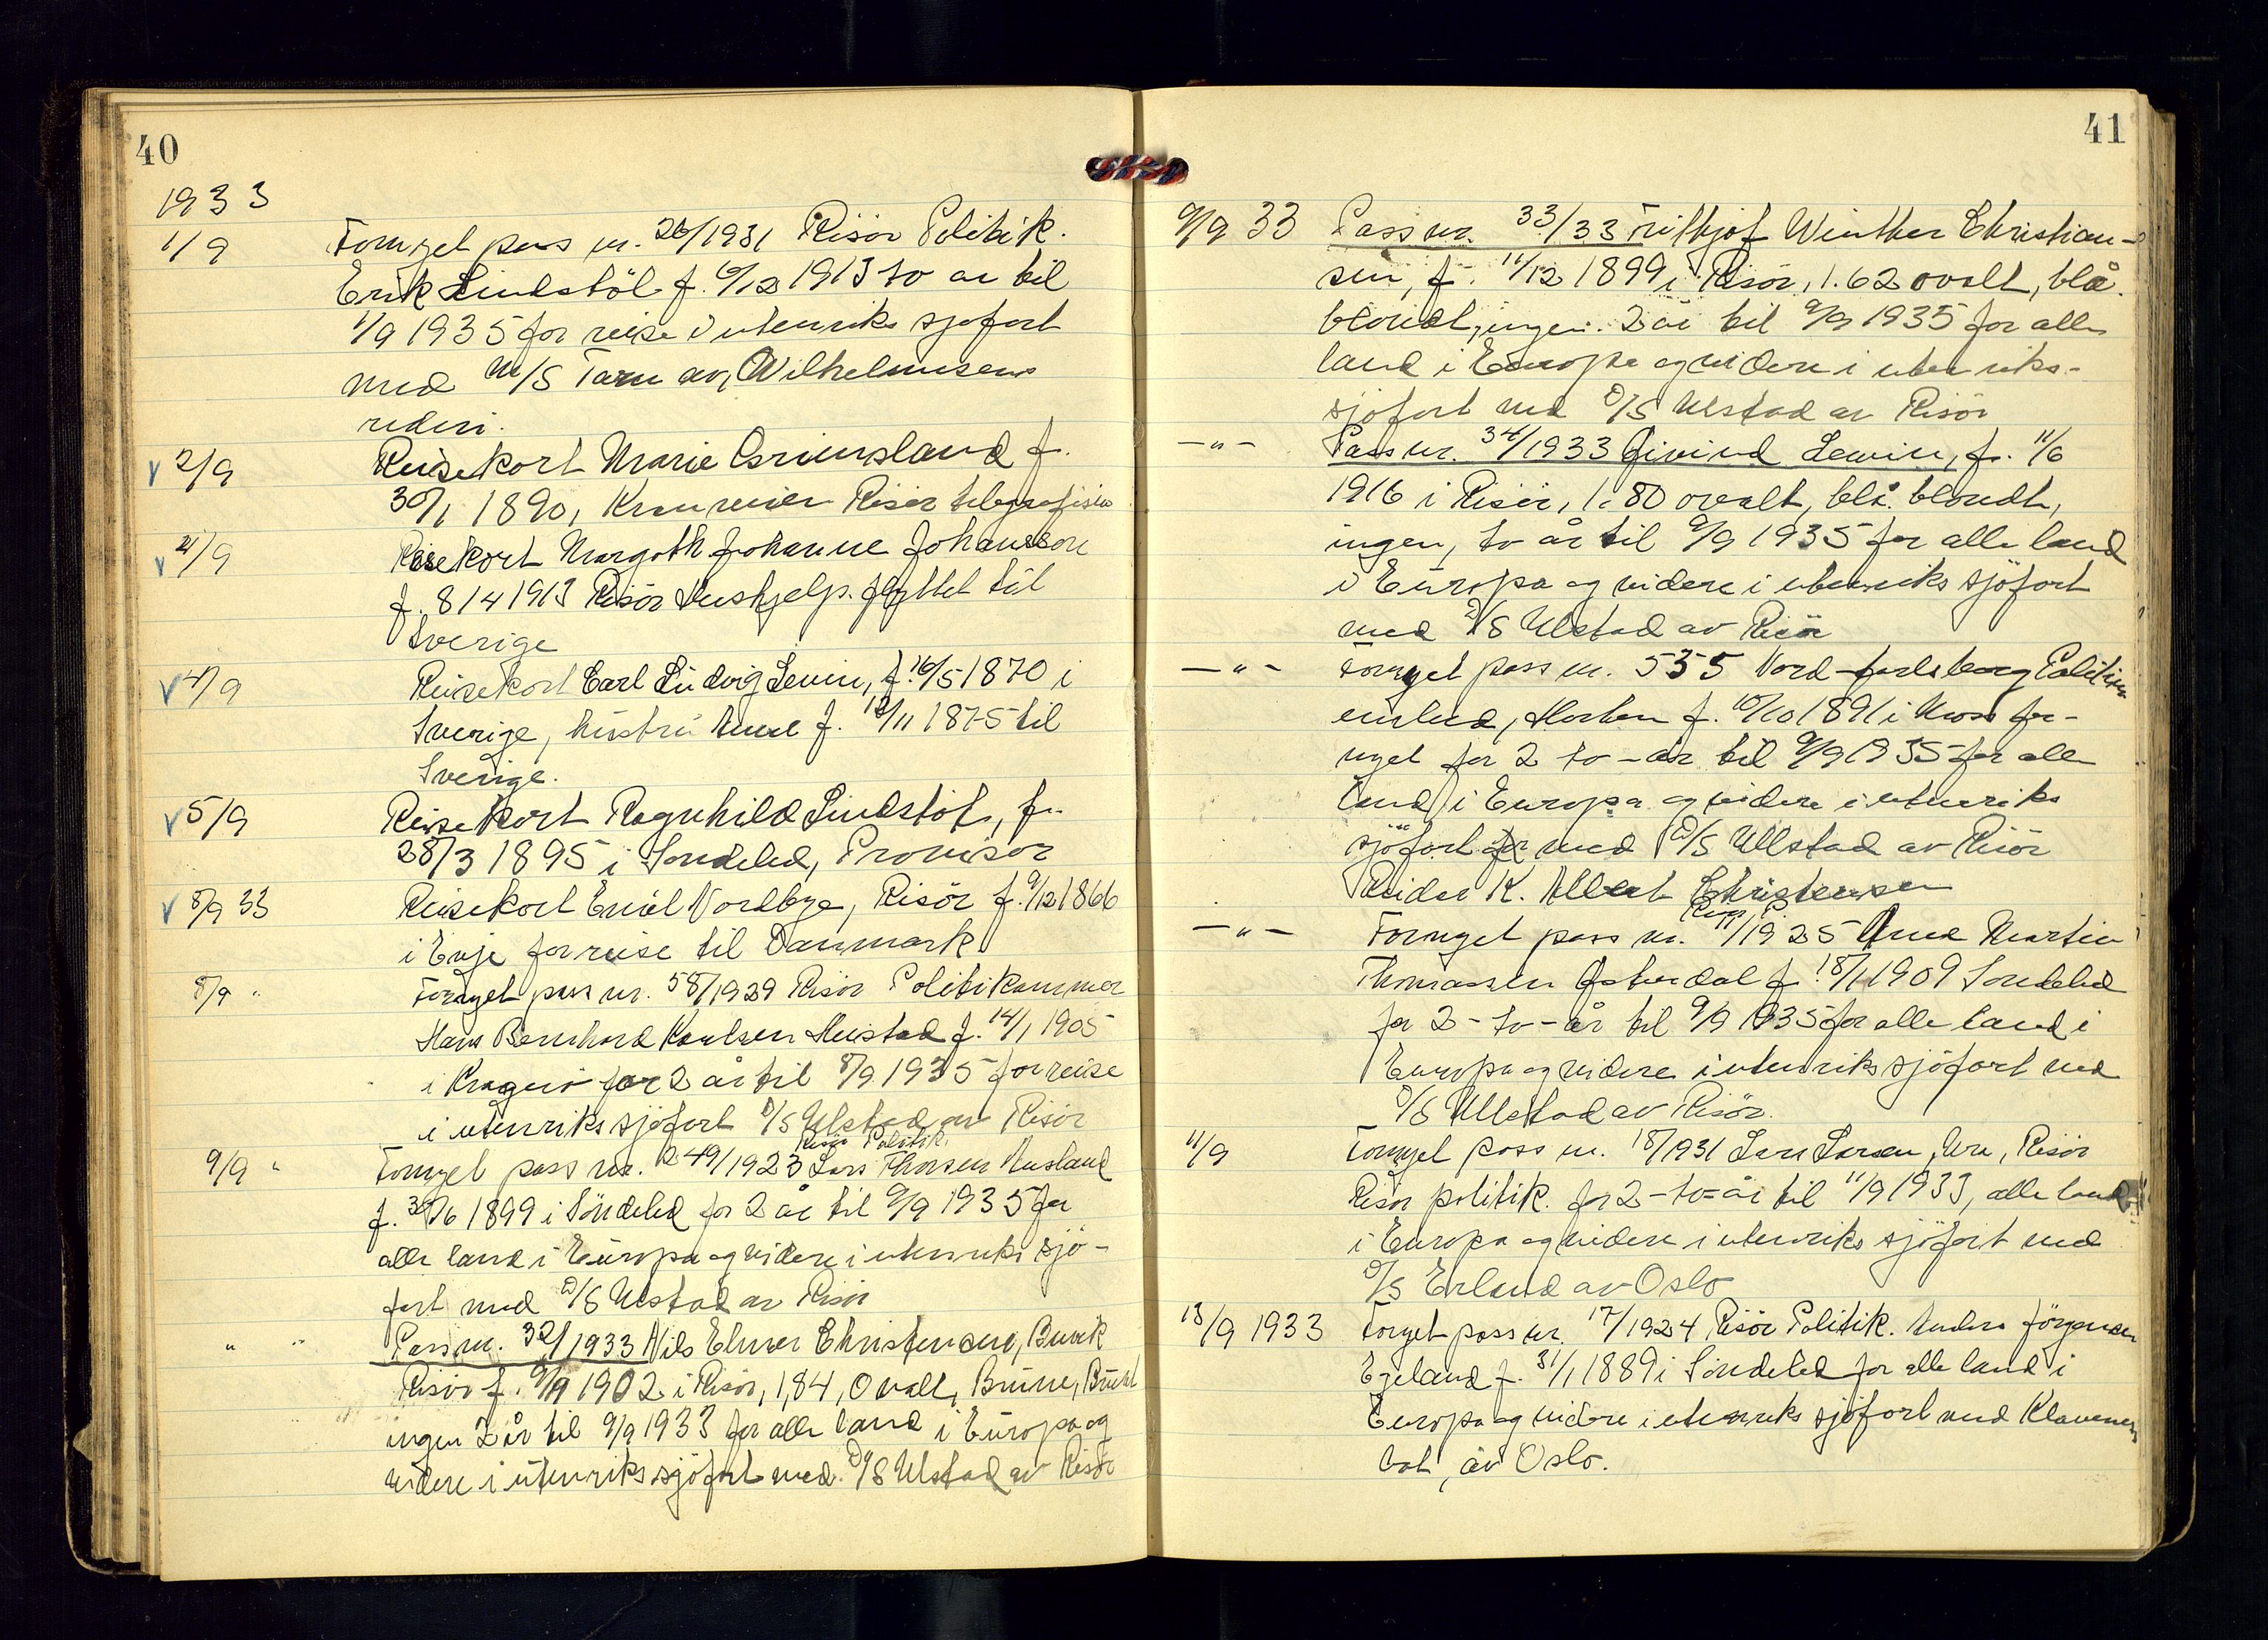 40
1933
1/9 Fornyet pass nr. 26/1931 Risör Politik.
Erik Lindstöl f. 6/12 1913 to år til
1/9 1935 for reise i utenriks sjöfart
med M/S Tarn av, Wilhelmsens
rederi.
2/9 Reisekort Marie Grimsland f.
30/1 1890, Risör telegrafistin
4/9 Reisekort Margoth Johanne Johansson
f. 8/4 1913 Risör Hushjelp. flyttet til
Sverige
4/9 Reisekort Carl Ludvig Lewin, f. 16/5 1870 i
Sverige, hustru Anne f. 12/11 1875 til
Sverige.
5/9 Reisekort Ragnhild Lindstöl, f.
28/3 1895 i Söndeled, Provisor
8/9 33 Reisekort Emil Nordbye, Risör f. 9/12 1866
i Evje for reise til Danmark
8/9 " Fornyet pass nr. 58/1929 Risör Politikammer
Hans Bernhard Paulsen f. 14/1 1905
i Kragerö for 2 år til 8/9 1935 for reise
i utenriks sjöfart D/S Ulstad av Risör
Risör Politik.
9/9 " Fornyet pass nr. 249/1923 Lars Thorsen Ausland
f. 30/6 1899 i Söndeled for 2 år til 9/9 1935 for
alle land i Europa og videre i utenriks sjö-
fart med D/S Ulstad av Risör
" " Pass nr. 32/1933 Nils Elmer Christensen, Buvik
Risör f. 9/9 1902 i Risör, 1,84, Ovalt, Brune, Brunt
ingen 2 år til 9/9 1933 for alle land i Europa og
videre i utenriks sjöfart med. D/S Ulstad av Risör
41
9/9 33 Pass nr. 33/33 Frithjof Winther Christian-
sen, f. 11/12 1899 i Risör, 1.62 ovalt, blå.
blondt, ingen. 2 år til 9/9 1935 for alle
land i Europa og videre i utenriks-
sjöfart med D/S Ulstad av Risör
— " — Pass nr. 34/1933 Eivind Lewin, f. 11/6
1916 i Risör, 1.80 ovalt, blå. blondt,
ingen, to år til 9/9 1935 for alle land
i Europa og videre i utenriks sjöfart
med D/S Ulstad av Risör
— " — Fornyet pass nr. 535 Nord-Jarlsberg Politim
embed, Horten f. 10/10 1891 i Moss for-
nyet for 2 to-år til 9/9 1935 for alle
land i Europa og videre i utenriks
sjöfart for med D/S Ullstad av Risör
Reidar K. Albert Christensen
Risör P.
— " — Fornyet pass nr. 11/1925 Arne Martin
Thomassen Østerdal f. 18/1 1909 Söndeled
for 2-to-år til 9/9 1935 for alle land i
Europa og videre i utenriks sjöfart med
D/S Ullstad av Risör.
11/9 Fornyet pass nr. 18/1931 Lars Larsen, Urn, Risör
Risör politik. for 2-to-år til 11/9 1933, alle land
i Europa og videre i utenriks sjöfart med
D/S Erland av Oslo
13/9 1933 Fornyet pass nr. 17/1924 Risör Politik. Anders Jörgensen
Egeland f. 31/1 1889 i Söndeled for alle land i
Europa og videre i utenriks sjöfart med Klavenes
bat, av Oslo.